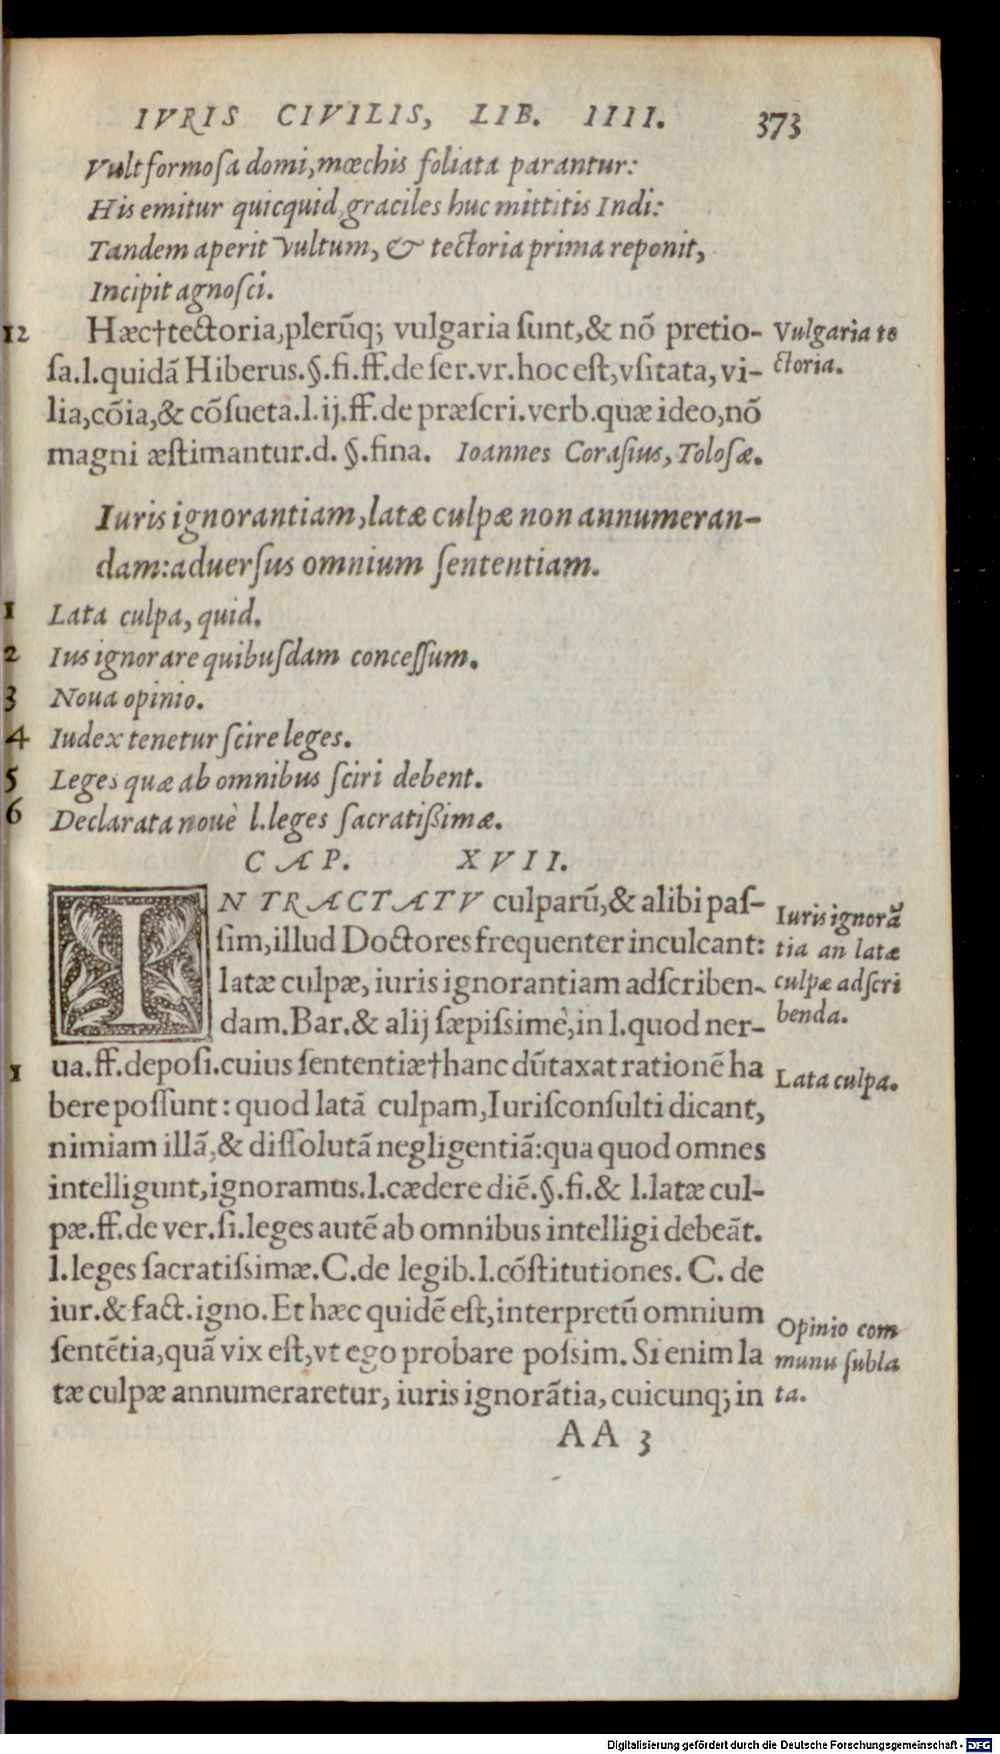 IVRIS CIVILIS, LIB. IIII. 373
Vult formoſa domi, mœchis foliata parantur:
His emitur quicquid, graciles huc mittitis Indi:
Tandem aperit vultum, & tectoria prima reponit,
Incipit agnoſci.
12 Hæc†tectoria,plerūq; vulgaria ſunt,& nō pretio-
Vulgaria te
ctoria.
ſa.l.quidā Hiberus.§.fi.ff.de ſer.vr.hoc eſt,vſitata, vi-
lia,cōia,& cōſueta.l.ij.ff.de præſcri.verb.quæ ideo,nō
magni æſtimantur.d. §.fina. Ioannes Coraſius, Toloſæ.
Iuris ignorantiam, latæ culpæ non annumeran-
dam: aduerſus omnium ſententiam.
1 Lata culpa, quid.
2 Ius ignorare quibuſdam conceſſum.
3 Noua opinio.
4 Iudex tenetur ſcire leges.
5 Leges quæ ab omnibus ſciri debent.
6 Declarata nouè l.leges ſacratißimæ.
CAP. XVII.
IN TRACTATV culparū,& alibi paſ-
ſim,illud Doctores frequenter inculcant:
latæ culpæ, iuris ignorantiam adſcriben-
dam.Bar.& alij ſæpiſsimè,in l.quod ner-
Iuris ignorā
tia an latæ
culpæ adſcri
benda.
1 ua.ff.depoſi.cuius ſententiæ†hanc dūtaxat rationē ha
Lata culpa.
bere poſſunt: quod latā culpam,Iuriſconſulti dicant,
nimiam illā,& diſſolutā negligentiā:qua quod omnes
intelligunt,ignoramus.l.cædere diē.§.fi.& l.latæ cul-
pæ.ff.de ver.ſi.leges autē ab omnibus intelligi debeāt.
l.leges ſacratiſsimæ.C.de legib.l.cōſtitutiones. C. de
iur.& fact.igno.Et hæc quidē eſt,interpretū omnium
ſentētia,quā vix eſt,vt ego probare poſsim. Si enim la
tæ culpæ annumeraretur, iuris ignorātia, cuicunq; in
Opinio com
munis ſubla
ta.
AA 3
Digitalisierung gefördert durch die Deutsche Forschungsgemeinschaft - DFG